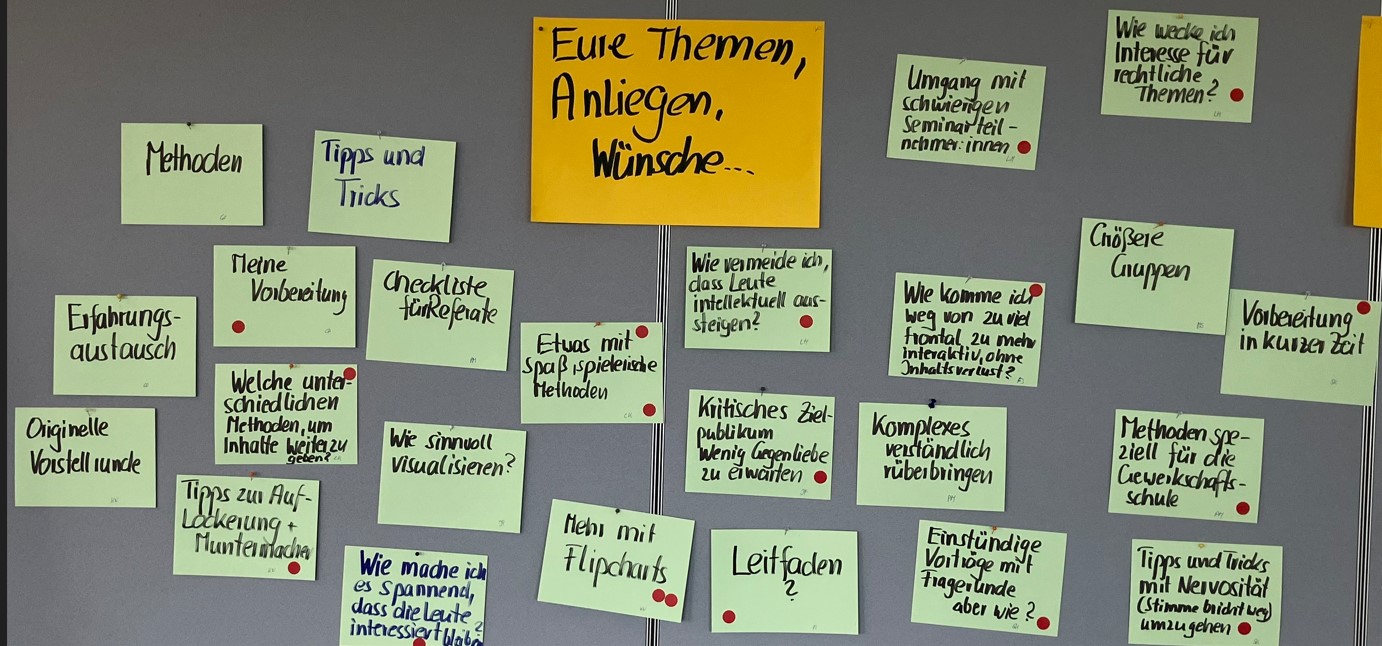 Eure Themen,
Anliegen,
Wünsche...
Methoden
Tipps und
Tricks
Meine
Vorbereitung
Checkliste
für Referate
Erfahrungs-
austausch
Welche unter-
schiedlichen
Methoden, um
Inhalte weiter zu
geben?
Originelle
Vorstellrunde
Wie sinnvoll
visualisieren?
Tipps zur Auf-
Lockerung +
Muntermacher
Wie mache ich
es spannend,
dass die Leute
interessiert bleiben
?
Etwas mit
Spaß, spielerische
Methoden
Mehr mit
Flipcharts
Wie vermeide ich,
dass Leute
intellektuell aus-
steigen?
Kritisches Ziel-
publikum
Wenig Gegenliebe
zu erwarten
Leitfaden
?
Umgang mit
schwierigen
Seminarteil-
nehmer:innen
Wie komme ich
weg von zu viel
frontal zu mehr
interaktiv, ohne
Inhaltsverlust?
Komplexes
verständlich
rüberbringen
Einstündige
Vorträge mit
Fragerunde
aber wie?
Wie wecke ich
Interesse für
rechtliche
Themen?
Größere
Gruppen
Vorbereitung
in kurzer Zeit
Methoden spe-
ziell für die
Gewerkschafts-
schule
Tipps und Tricks
mit Nervosität
(Stimme bricht weg)
umzugehen